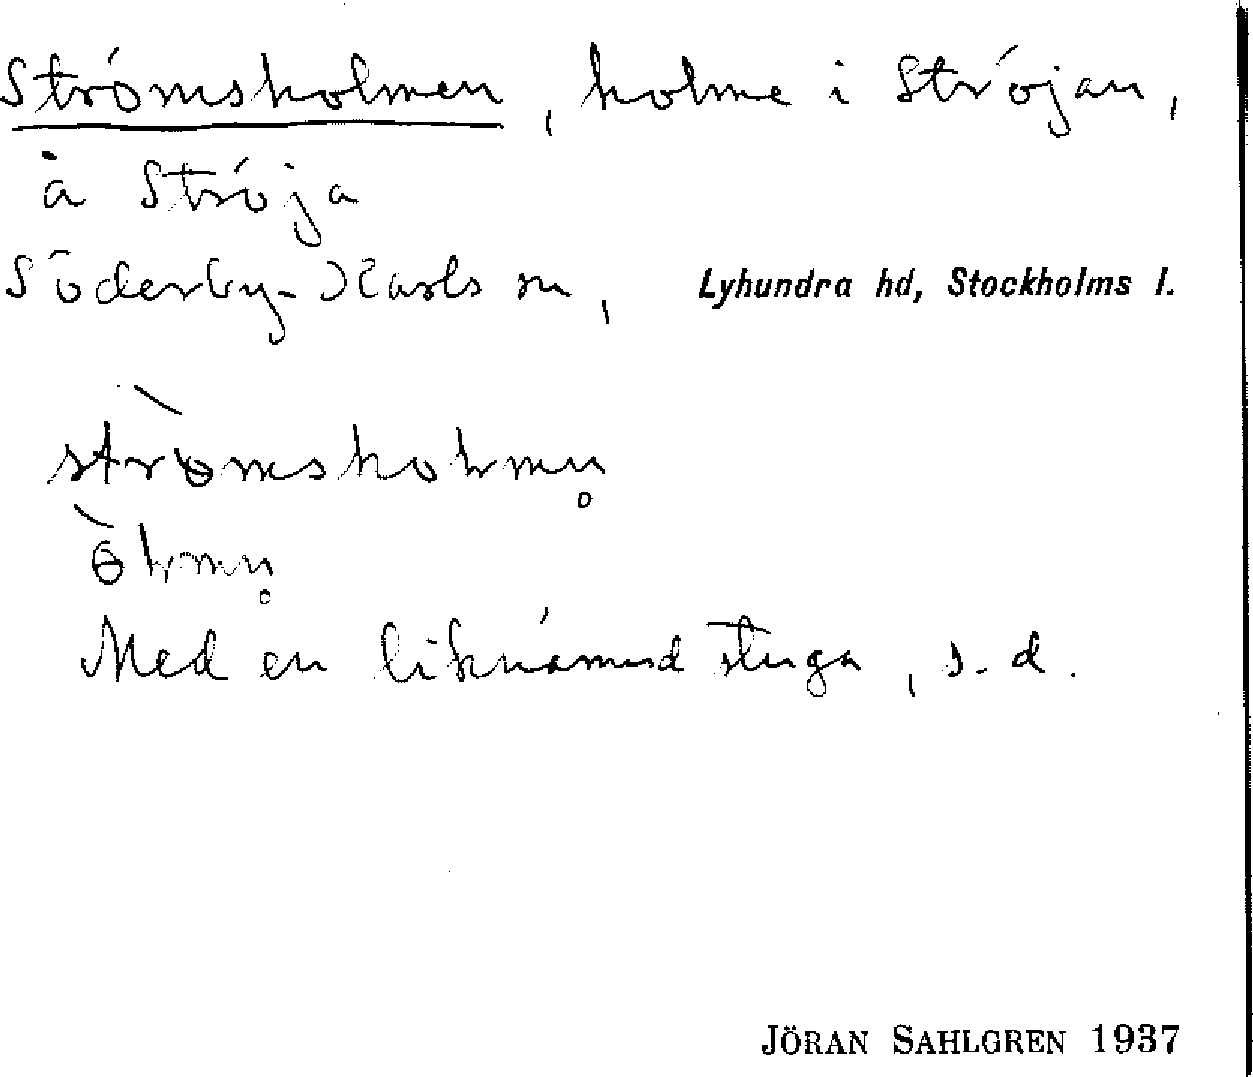 Strömsholmen, holme i Ströjan,
å Ströja
Söderby-Karls sn, Lyhundra hd, Stockholms l.
Med en liknämnd stuga, s. d.
JÖRAN SAHLGREN 1937